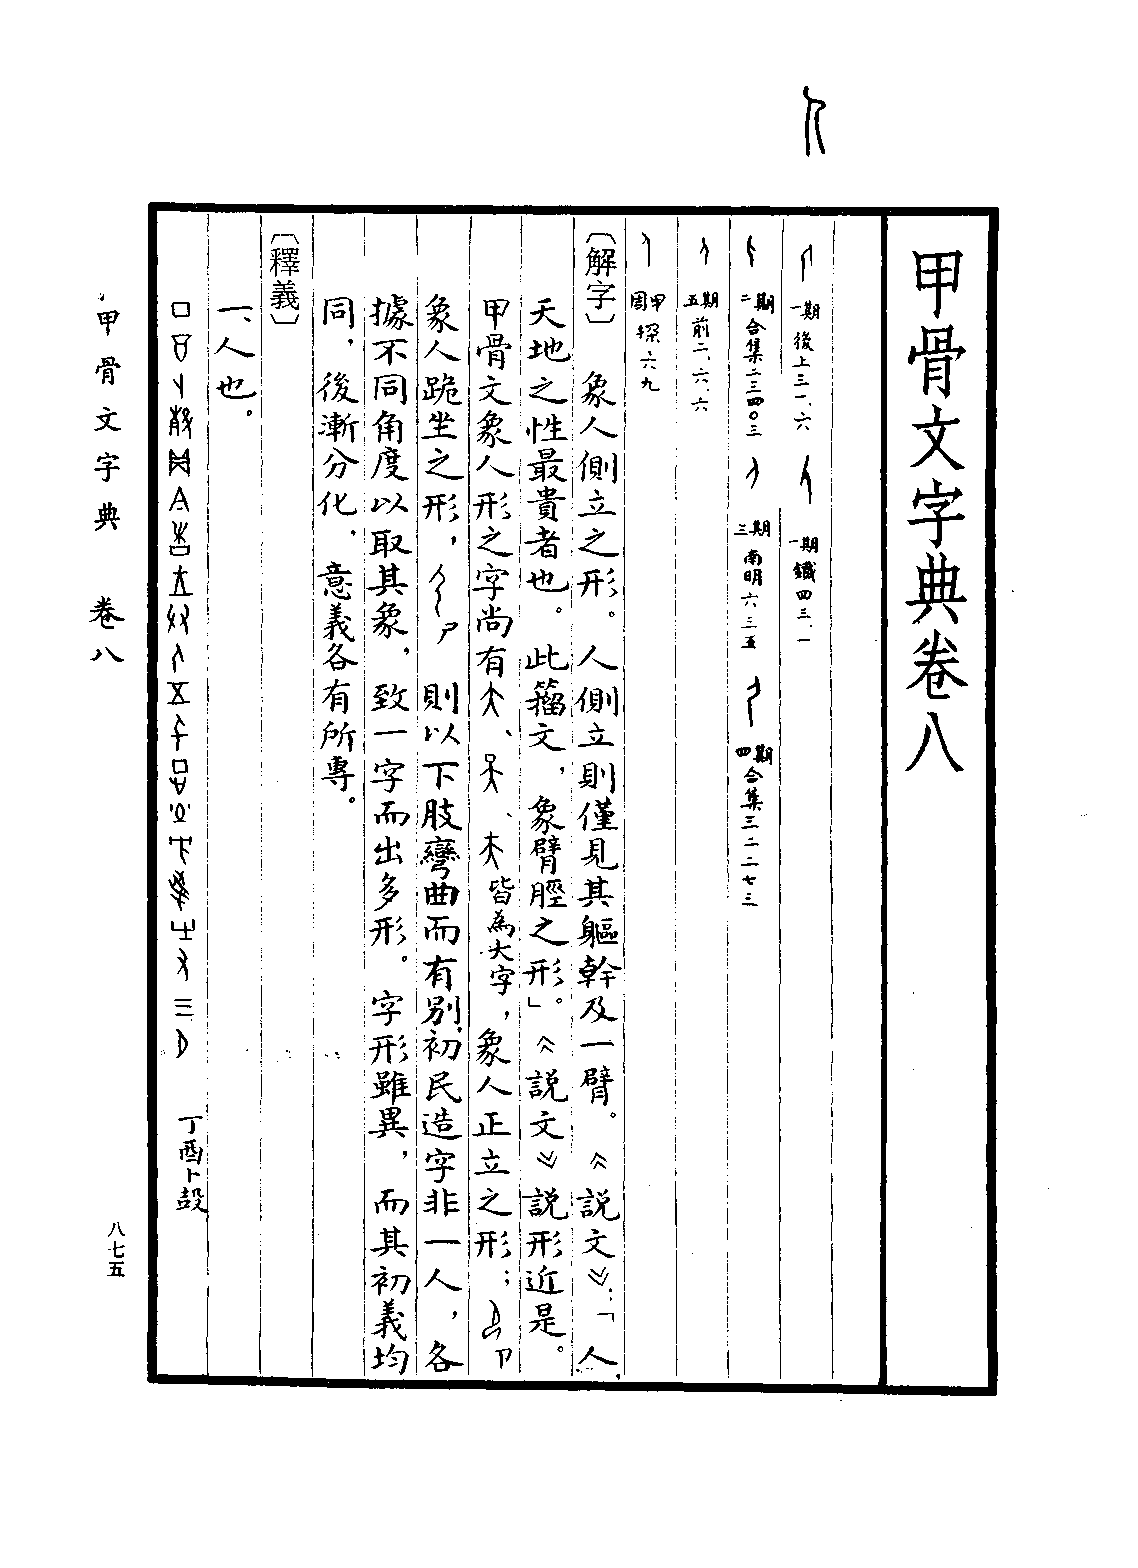 甲骨文字典卷八
一期 後上三一、六 一期 鐵四三、一
二期 合集二三四〇三 三期 南明六三五 四期 合集三二二七三
五期 前二、六、六
周甲 探六九
〔解字〕象人側立之形。人側立則僅見其軀幹及一臂。《說文》：「人，
天地之性最貴者也。此籀文，象臂脛之形」。《說文》說形近是。
甲骨文象人形之字尚有、、皆為大字，象人正立之形；
象人跪坐之形，則以下肢彎曲而有別，初民造字非一人，各
據不同角度以取其象，致一字而出多形。字形雖異，而其初義均
同，後漸分化，意義各有所專。
〔釋義〕
一、人也。
丁酉卜㱿
甲骨文字典 卷八
八七五